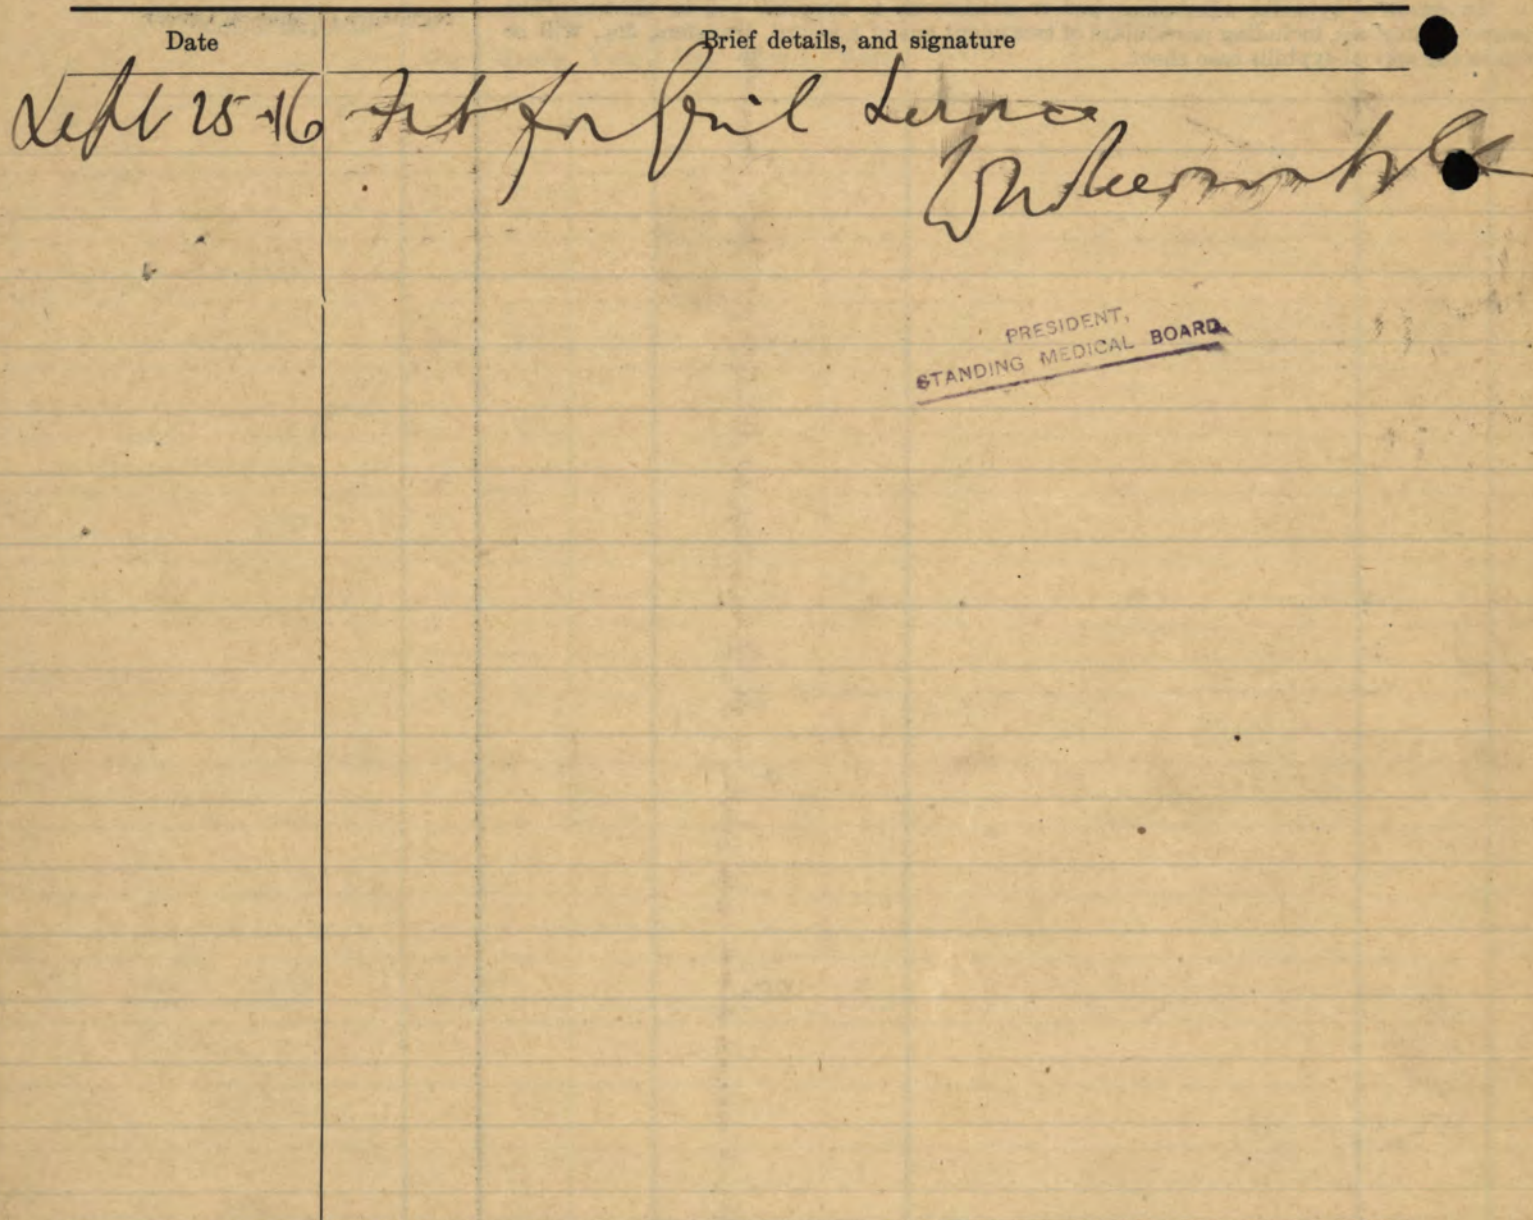 Date Brief details, and signature
Sept 25-16 Fit for Genl Service
PRESIDENT,
STANDING MEDICAL BOARD.